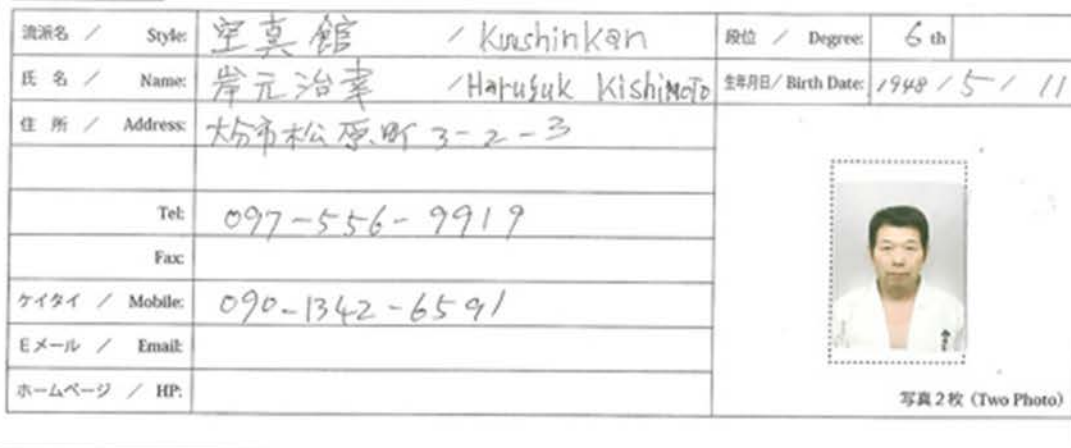 流派名 / Style: 空真館 / Kuushinkan 段位 / Degree: 6 th
氏 名 / Name: 岸元治幸 /Harusuk KishiMoTo 生年月日/ Birth Date: 1948 / 5 / 11
住 所 / Address: 大分市松原町 3-2-3
Tel: 097-556-9919
Fax:
ケイタイ / Mobile: 090-1342-6591
Eメール / Email:
ホームページ / HP:
写真2枚 (Two Photo)